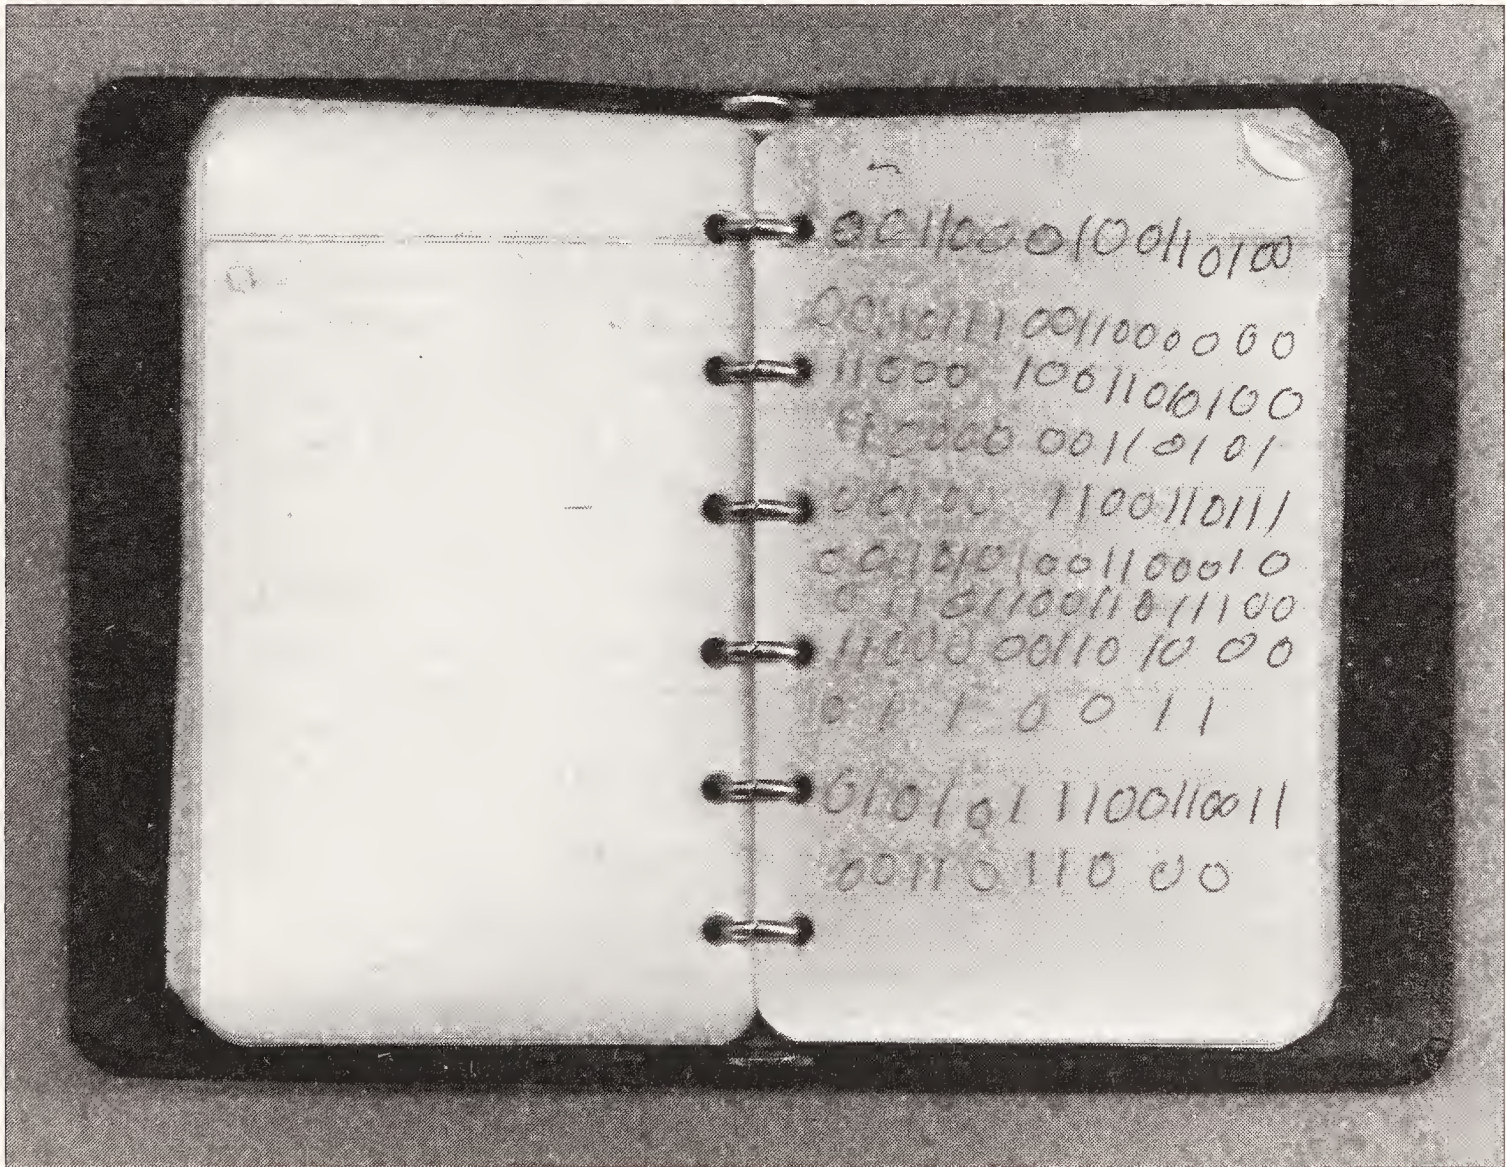 0011000100110100
001101110011000000
11000 10011010100
110000 00110101
001100 1100110111
00110101001100010
0110110011011100
11000 00110 10 0 0
0 1 1 0 0 1 1
010101 1100110011
0011 0 110 00